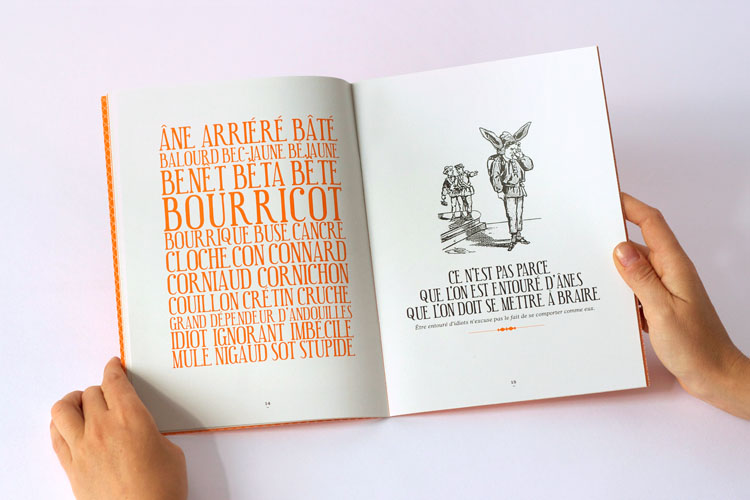 ÂNE ARRIÉRÉ BÂTÉ
BALOURD BEC-JAUNE BEJAUNE
BENET BÊTA BÊTE
BOURRICOT
BOURRIQUE BUSE CANCRE
CLOCHE CON CONNARD
CORNIAUD CORNICHON
COUILLON CRÉTIN CRUCHE
GRAND DÉPENDEUR D'ANDOUILLES
IDIOT IGNORANT IMBÉCILE
MULE NIGAUD SOT STUPIDE
14
CE N'EST PAS PARCE
QUE L'ON EST ENTOURÉ D'ÂNES
QUE L'ON DOIT SE METTRE À BRAIRE
Être entouré d'idiots n'excuse pas le fait de se comporter comme eux.